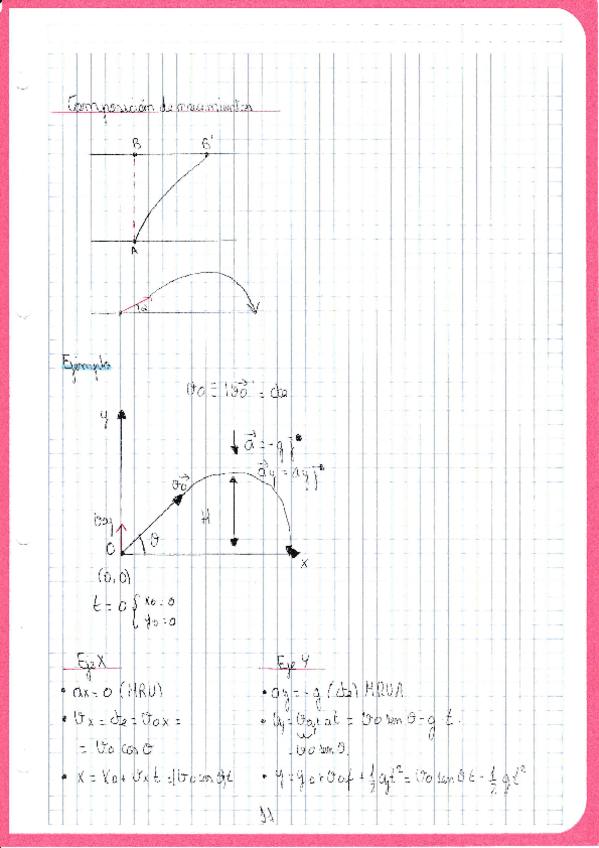 Composición de movimientos
B B'
A
α
Ejemplo
v0 ≡ |v0→| = cte
y
a→ = -g j→
a→y = ay j→
v0→
v0y
H
θ
O
x
(0,0)
t = 0 { x0 = 0
y0 = 0
Eje X
• ax = 0 (MRU)
• vx = cte = v0x =
= v0 cos θ
• x = x0 + vx t = v0 cos θ t
Eje Y
• ay = -g (cte) MRUA
• vy = v0y + at = v0 sen θ - g t.
v0 sen θ.
• y = y0 + v0y t + 1/2 ay t² = v0 sen θ t - 1/2 g t²
11